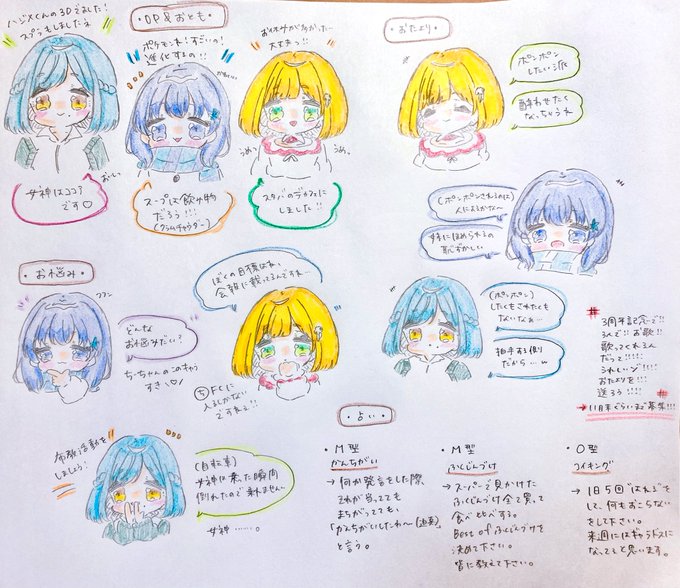 ハジメくんの3Dでました!
スプラもしましたネ
・OP&おとも・
ポケモンね!すごいの!
進化するの!!
かわいい
お休みが多かった…
大丈夫っ!!
おーい
女神はココア
です♡
スープは飲み物
だろう!!!
(クラムチャウダー)
うめ〜
うめぇ
スタバのデカフェに
しました!!
おたより
ポンポン
したい派
酔わせたく
なっちゃうね
(ポンポンされるのは)
人によるかな〜
体にほめられるの
恥ずかしい
(ポンポン)
したくもされたくも
ないなぁ…
拍手する側
だから…
3周年記念で!!
3人で!!お歌!!
歌ってくれるん
だって!!!!
うれしいゾ!!!
おたよりを!!
送ろう!!!!
→11日まで募集!!!
・お悩み・
フフン
どんな
お悩みだい?
ちーちゃんのこのきょう
すき♡!
ぼくの目標はね、
会報に載ってるんですわ…
FCに
入るしかない
ですわる!!
布教活動を
しましょう!
(自転車)
女神は乗った瞬間
倒れたので乗れません〜
女神………。
占い
・M型
かんちがい
→何か発言をした際、
それが合ってても
まちがってても、
「かんちがいしたわ〜(迫真)」
と言う。
・M型
ふくじんづけ
→スーパーで見かけた
ふくじんづけ全て買って
食べくらべする。
Best of ふくじんづけを
決めて下さい。
皆に教えて下さい。
・O型
コイキング
→1日5回“はねる”を
して、何もおこらない
をして下さい。
来週にはギャラドスに
なってると思います。